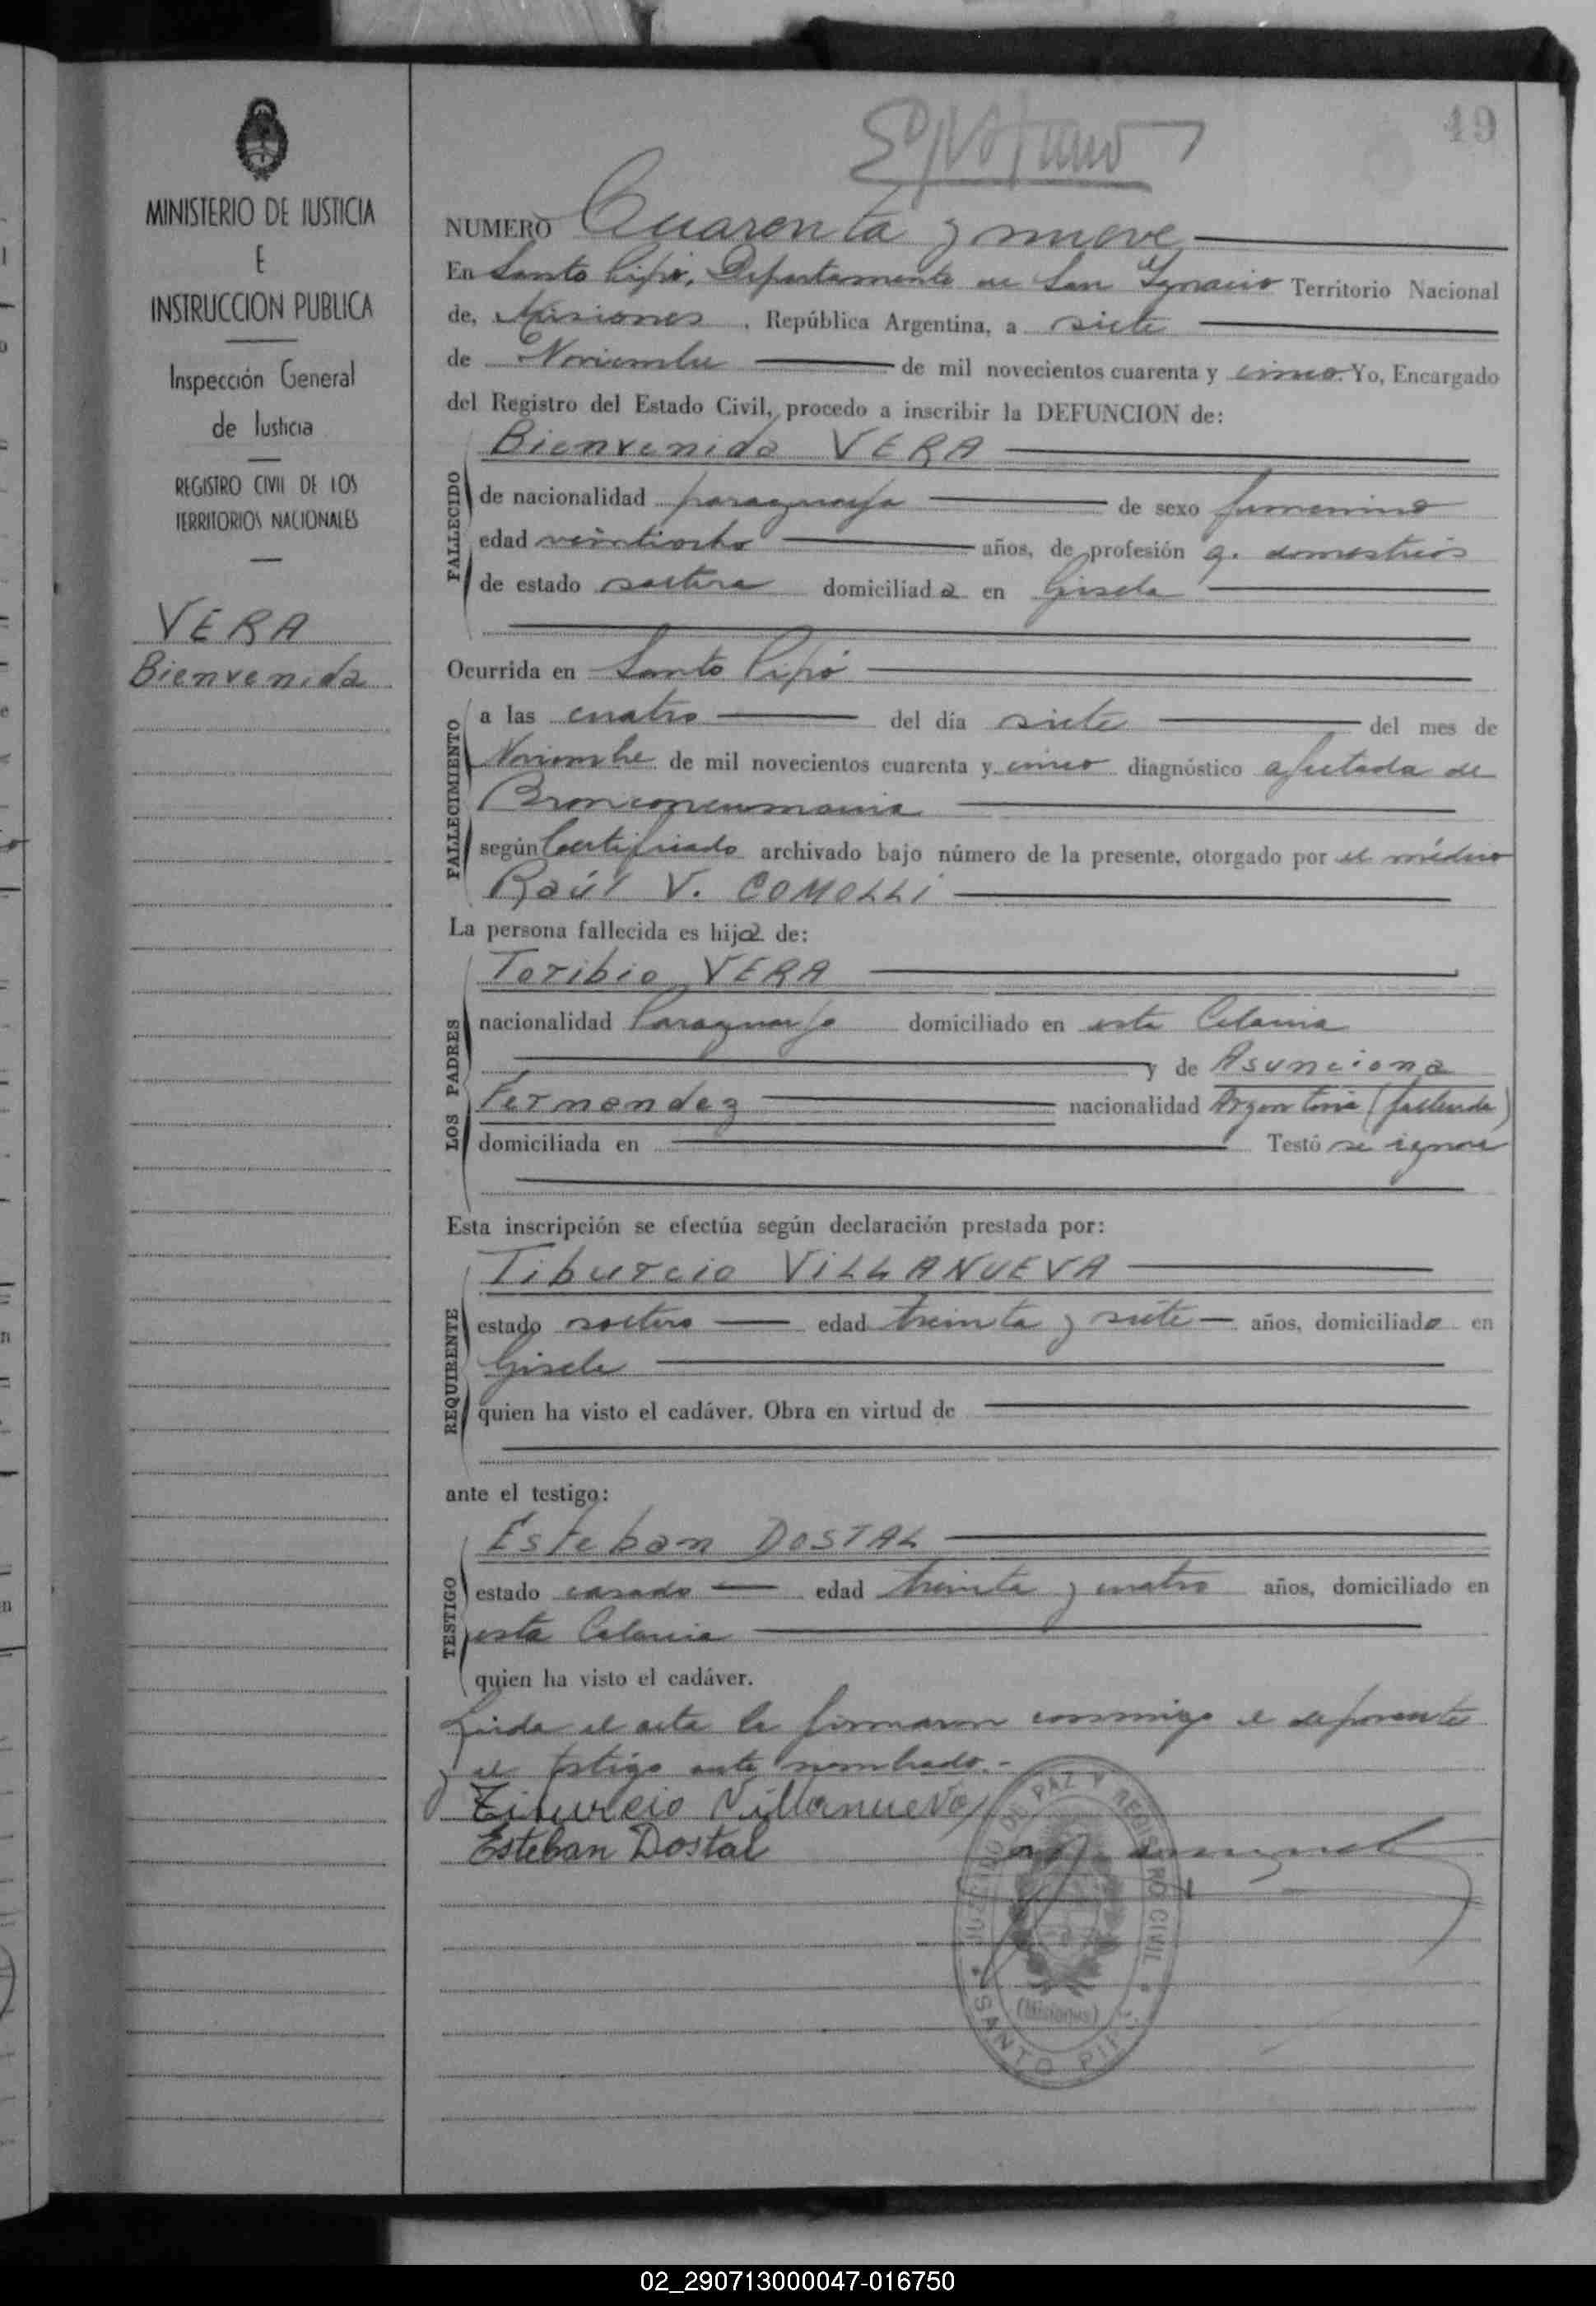 49
NUMERO Cuarenta y nueve
En Santo Pipó, Departamento de San Ignacio Territorio Nacional
de, Misiones, República Argentina, a siete
de Noviembre de mil novecientos cuarenta y cinco. Yo, Encargado
del Registro del Estado Civil, procedo a inscribir la DEFUNCION de:
Bienvenida VERA
FALLECIDO
de nacionalidad paraguaya de sexo femenino
edad veintiocho años, de profesión q. domesticos
de estado soltera domiciliada en Gisela
Ocurrida en Santo Pipó
FALLECIMIENTO
a las cuatro del día siete del mes de
Noviembre de mil novecientos cuarenta y cinco diagnóstico afectada de
Bronconeumonia
según Certificado archivado bajo número de la presente, otorgado por el médico
Raúl V. COMOLLI
La persona fallecida es hija de:
LOS PADRES
Toribio VERA
nacionalidad Paraguayo domiciliado en esta Colonia
y de Asunciona
Fernandez nacionalidad Argentina (fallecida)
domiciliada en Testó se ignora
Esta inscripción se efectúa según declaración prestada por:
REQUIRENTE
Tiburcio VILLANUEVA
estado soltero edad treinta y siete años, domiciliado en
Gisela
quien ha visto el cadáver. Obra en virtud de
ante el testigo:
TESTIGO
Esteban DOSTAL
estado casado edad treinta y cuatro años, domiciliado en
esta Colonia
quien ha visto el cadáver.
Leida el acta la firmaron conmigo el deponente
y el testigo ante nombrado.-
Tiburcio Villanueva
Esteban Dostal
JUZGADO DE PAZ Y REGISTRO CIVIL
(Misiones)
SANTO PIPÓ
MINISTERIO DE JUSTICIA
E
INSTRUCCION PUBLICA
Inspección General
de Justicia
REGISTRO CIVIL DE LOS
TERRITORIOS NACIONALES
VERA
Bienvenida
02_290713000047-016750